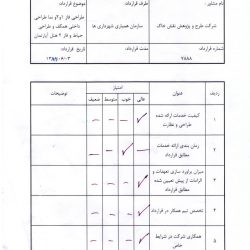 نام مشاور :
طرف قرارداد:
موضوع قرارداد:
شرکت طرح و پژوهش نقش خاک
سازمان همیاری شهرداری ها
طراحی فاز ۱و۲ نما طراحی
داخلی همکف و طراحی
حیاط و فاز ۲ هتل آپارتمان
شماره قرارداد:
مدت قرارداد:
تاریخ قرارداد:
۷۸۸۸
ردیف
عنوان
امتیاز
توضیحات
عالی
خوب
متوسط
ضعیف
۱
کیفیت خدمات ارائه شده
طراحی و نظارت
۲
زمان بندی ارائه خدمات
مطابق قرارداد
۳
میزان برآورد سازی تعهدات و
الزامات از پیش تعیین شده
مطابق قرارداد
۴
تخصص تیم همکار در قرارداد
۵
همکاری شرکت در شرایط
خاص